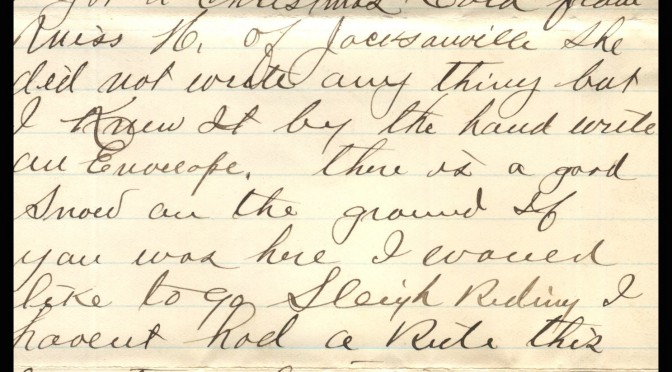 got a Christmas Card from
Miss H. of Jacksonville She
did not write any thing but
I Knew It by the hand write
on Envelope. there is a good
Snow on the ground If
you was here I would
like to go Sleigh Riding I
havent had a Ride this